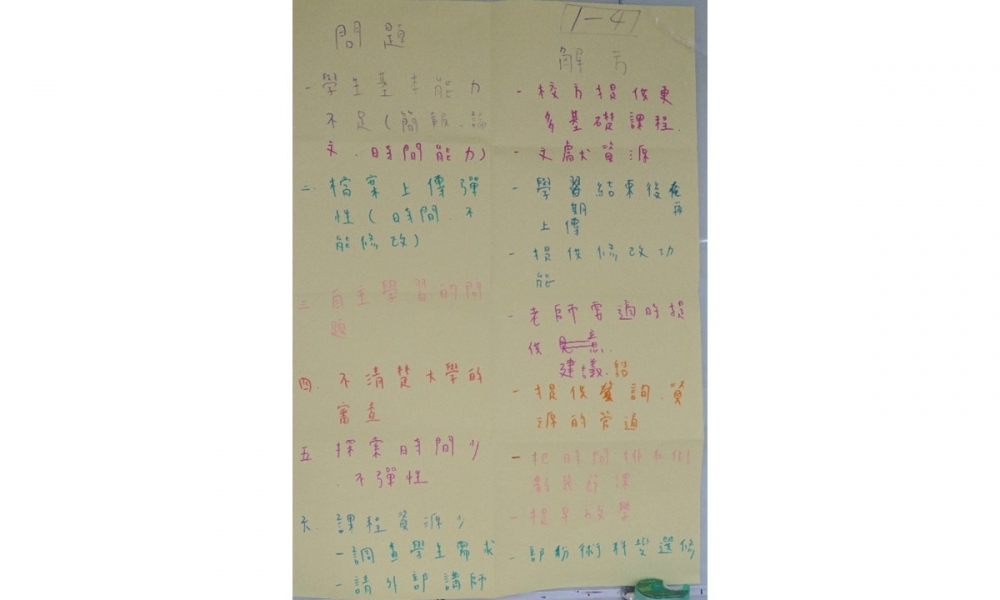 問題
一學生基本能力
不足(簡報、論
文、時間能力)
二、檔案上傳彈
性(時間、不
能修改)
三 自主學習的問
題
四、不清楚大學的
審查
五 探索時間少
、不彈性
六、課程資源少
-調查學生需求
-請外部講師
1-4
解方
- 校方提供更
多基礎課程.
- 文獻資源
- 學習結束後
期
再
上傳
- 提供修改功
能
- 老師需適時提
供
建議.
- 提供 詢.資
源的管道
- 把時間排在
課
- 提早放學
-部份術科 選修